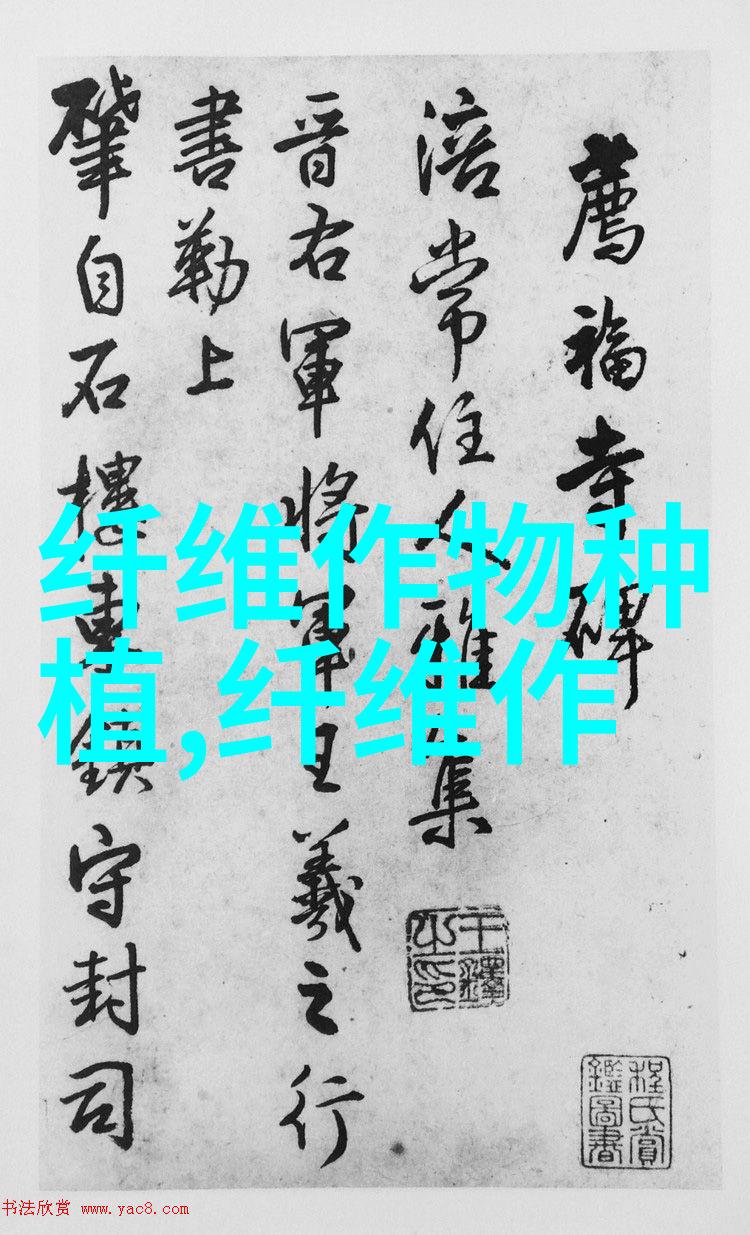 薦福寺碑
涪常住人雅集
晉右軍將軍王羲之行
書勒上
肇自石樓鎮守封司
纤维作物种
植,纤维作
王鐸之印
程氏賞鑑圖書
书法欣赏 www.yac8.com